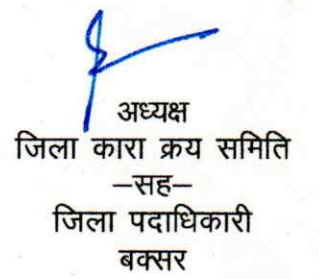 अध्यक्ष
जिला कारा क्रय समिति
–सह–
जिला पदाधिकारी
बक्सर